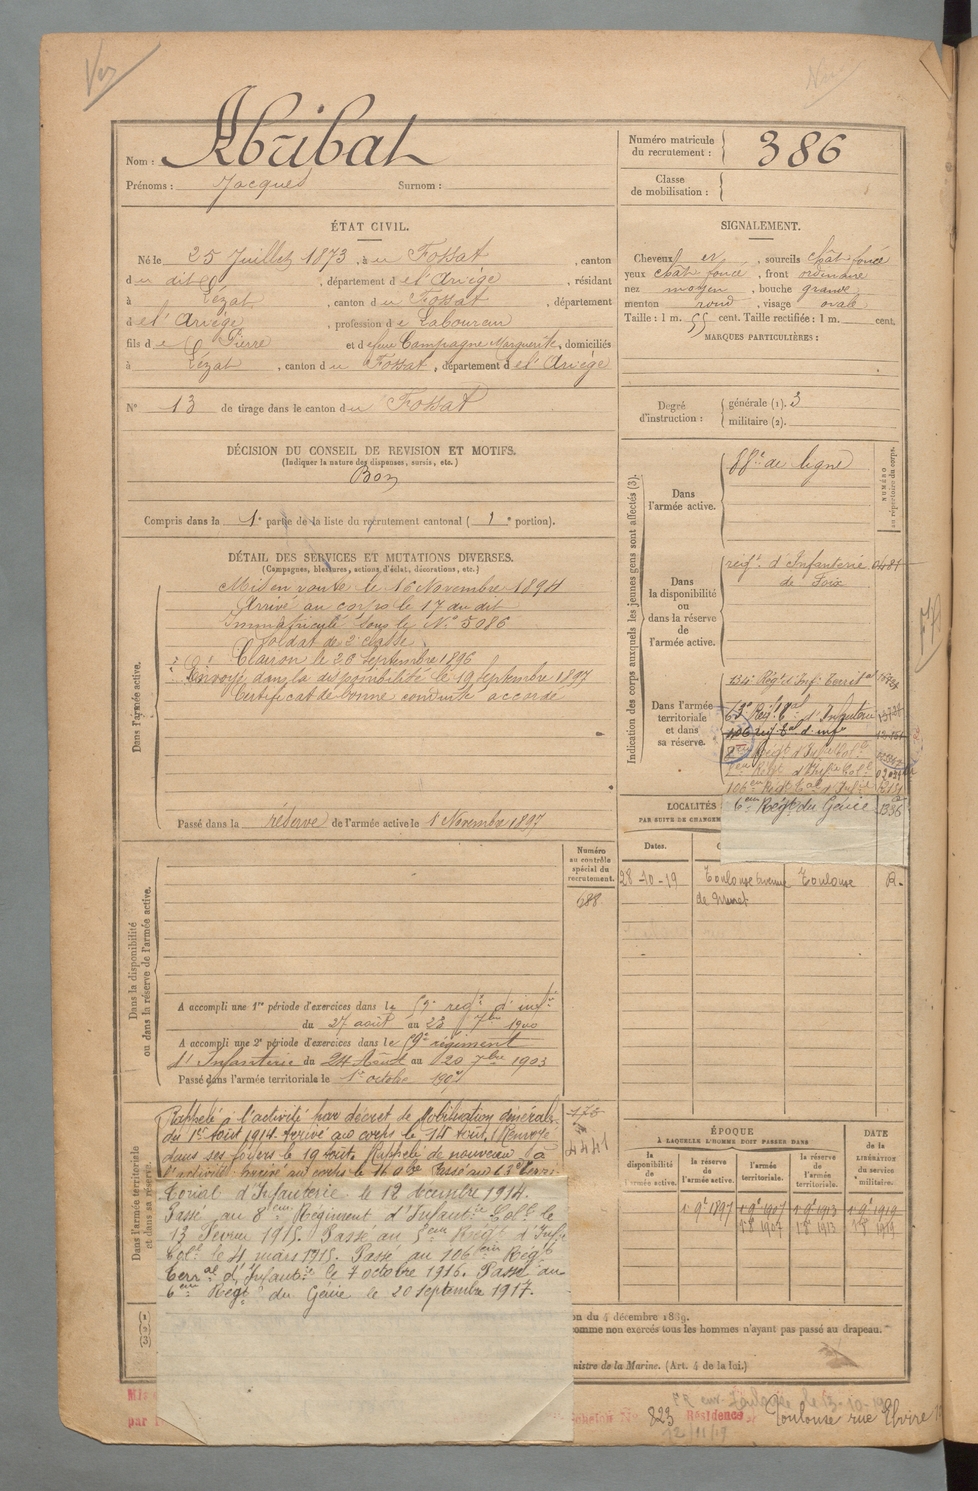 Nom : Abribat
Prénoms : Jacques Surnom :
Numéro matricule du recrutement : 386
Classe de mobilisation :
ÉTAT CIVIL.
Né le 25 Juillet 1873, à u Fossat, canton
d u dit, département d e l'Ariège, résidant
à Lézat, canton d u Fossat, département
d e l'Ariège, profession d e Laboureur
fils d e Pierre et d e Campagne Marguerite, domiciliés
à Lézat, canton d u Fossat, département d e l'Ariège
N° 13 de tirage dans le canton d u Fossat
SIGNALEMENT.
Cheveux, sourcils chat. foncé
yeux chat. foncé, front ordinaire
nez moyen, bouche grande
menton rond, visage ovale
Taille : 1 m. 55 cent. Taille rectifiée : 1 m. cent.
MARQUES PARTICULIÈRES :
Degré d'instruction : générale (1). 3
militaire (2).
DÉCISION DU CONSEIL DE REVISION ET MOTIFS.
(Indiquer la nature des dispenses, sursis, etc.)
Bon
Compris dans la 1e partie de la liste du recrutement cantonal ( 1 e portion).
DÉTAIL DES SERVICES ET MUTATIONS DIVERSES.
(Campagnes, blessures, actions d'éclat, décorations, etc.)
Dans l'armée active.
Mis en route le 16 Novembre 1894
Arrivé au corps le 17 du dit
Immatriculé sous le N° 5086
Soldat de 2e classe
Clairon le 20 Septembre 1896
Envoyé dans la disponibilité le 19 Septembre 1897
Certificat de bonne conduite accordé
Passé dans la réserve de l'armée active le 1 Novembre 1897
Indication des corps auxquels les jeunes gens sont affectés (3).
NUMÉRO au répertoire du corps.
Dans l'armée active.
de ligne
Dans la disponibilité ou dans la réserve de l'armée active.
régt. d'Infanterie
de Foix
Dans l'armée territoriale et dans sa réserve.
134e Régt d'Inf. Territal
63e Régt Tal d'Infanterie
106 régt tal d'inf
8em Régt d'Infie Colle
5em Régt d'Infie Colle
106em Régt Tal d'Infie
6em Régt du Génie 1336
LOCALITÉS
PAR SUITE DE CHANGEM
Dates.
28-10-19 Toulouse avenue de Muret Toulouse R.
Dans la disponibilité ou dans la réserve de l'armée active.
Numéro au contrôle spécial du recrutement.
688
A accompli une 1re période d'exercices dans le 59e régt d'infie
du 27 août au 23 7bre 1900
A accompli une 2e période d'exercices dans le 59e régiment
d'Infanterie du 24 Août au 20 7bre 1903
Passé dans l'armée territoriale le 1er octobre 1907
Dans l'armée territoriale et dans sa réserve.
Rappelé à l'activité par décret de Mobilisation Générale
du 1er Août 1914. Arrivé au corps le 14 Août. Renvoyé
dans ses foyers le 19 Août. Rappelé de nouveau à
l'activité. Arrivé au corps le 16 8bre. Passé au 63e Terri
torial d'Infanterie le 12 décembre 1914.
Passé au 8em Régiment d'Infantie Colle le
13 Février 1915. Passé au 5em Régt d'Infie
Colle le 4 mars 1915. Passé au 106em Régt
Terral d'Infantie le 7 octobre 1916. Passé au
6em Régt du Génie le 20 Septembre 1917.
4441
ÉPOQUE
À LAQUELLE L'HOMME DOIT PASSER DANS
DATE de la LIBÉRATION du service militaire.
la disponibilité de l'armée active.
la réserve de l'armée active.
l'armée territoriale.
la réserve de l'armée territoriale.
1 9e 1897 1 9e 1907 1 9e 1913 1 9e 1919
on du 4 décembre 1889.
omme non exercés tous les hommes n'ayant pas passé au drapeau.
nistre de la Marine. (Art. 4 de la loi.)
823 Résidence Toulouse rue
12/11/19